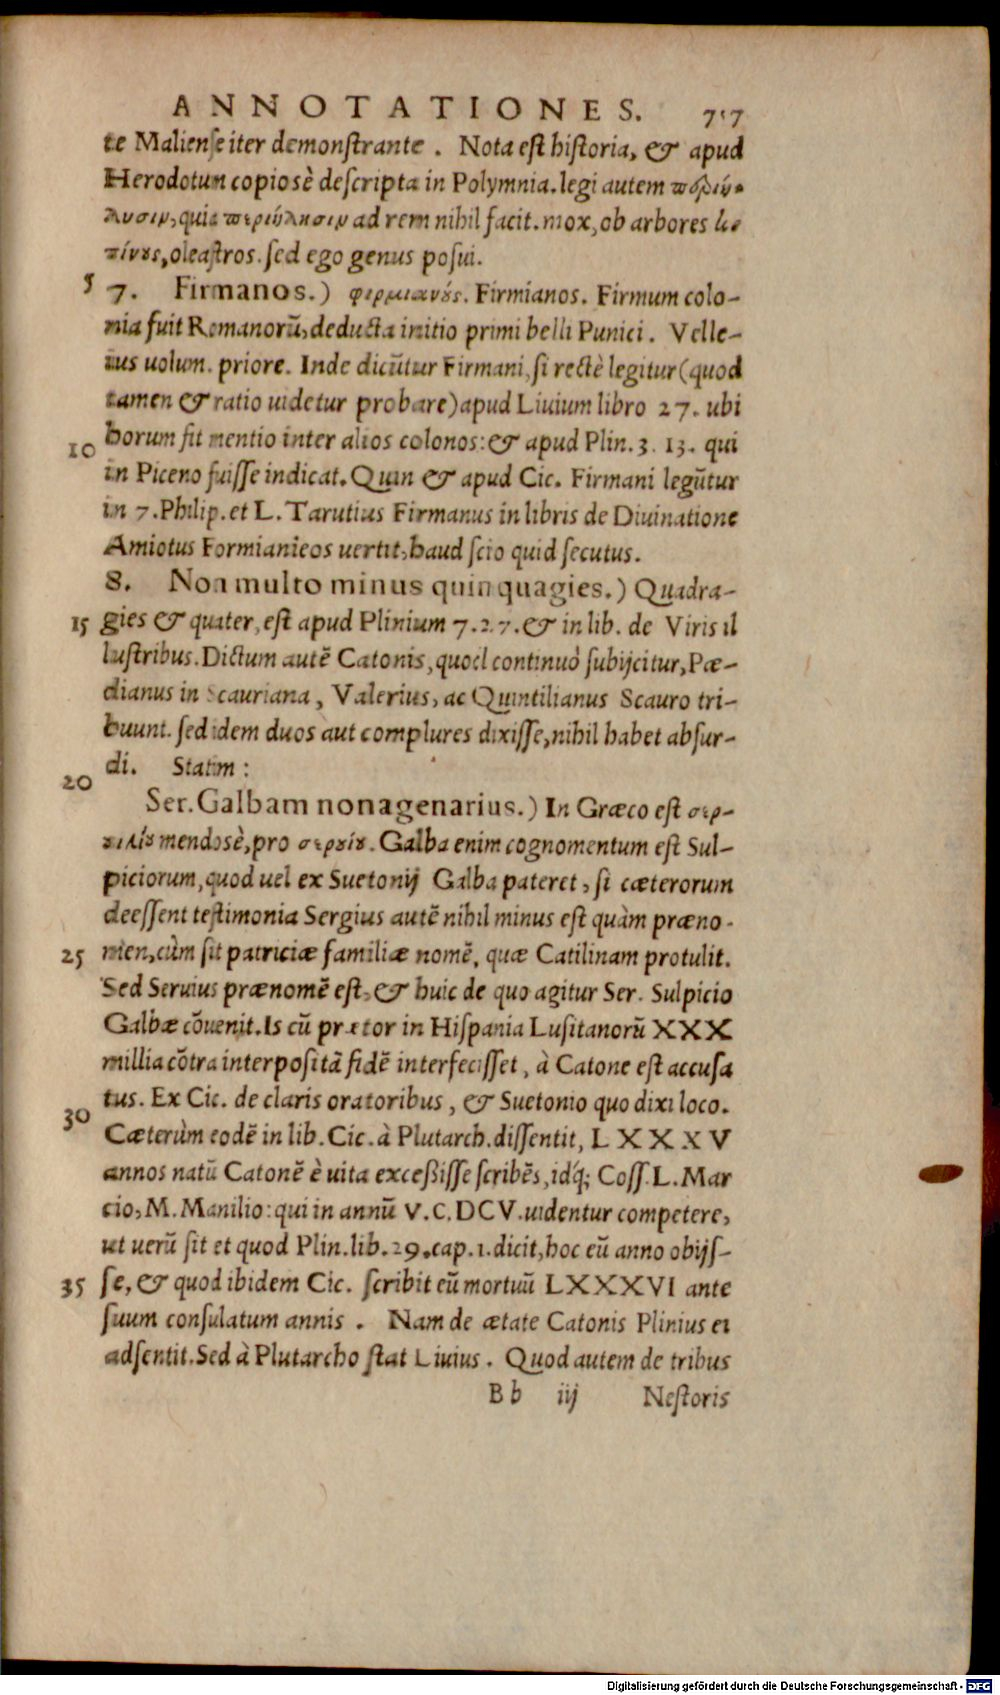 ANNOTATIONES. 757
te Maliense iter demonstrante . Nota est historia, & apud
Herodotum copiosè descripta in Polymnia. legi autem
quia ad rem nihil facit. mox, ob arbores
oleastros. sed ego genus posui.
5 7. Firmanos.) φιρμιανούς. Firmianos. Firmum colo-
nia fuit Romanorũ, deducta initio primi belli Punici . Velle-
ius uolum. priore. Inde dicũtur Firmani, si rectè legitur (quod
tamen & ratio uidetur probare) apud Liuium libro 27. ubi
10 horum fit mentio inter alios colonos: & apud Plin. 3. 13. qui
in Piceno fuisse indicat. Quin & apud Cic. Firmani legũtur
in 7. Philip. et L. Tarutius Firmanus in libris de Diuinatione
Amiotus Formianieos uertit, haud scio quid secutus.
8. Non multo minus quinquagies.) Quadra-
15 gies & quater, est apud Plinium 7. 27. & in lib. de Viris il
lustribus. Dictum autẽ Catonis, quod continuò subijcitur, Pæ-
dianus in Scauriana, Valerius, ac Quintilianus Scauro tri-
buunt. sed idem duos aut complures dixisse, nihil habet absur-
di. Statim :
20
Ser. Galbam nonagenarius.) In Græco est σερ-
mendosè, pro σερουίου. Galba enim cognomentum est Sul-
piciorum, quod uel ex Suetonij Galba pateret, si cæterorum
deessent testimonia Sergius autẽ nihil minus est quàm præno-
25 men, cùm sit patriciæ familiæ nomẽ, quæ Catilinam protulit.
Sed Seruius prænomẽ est, & huic de quo agitur Ser. Sulpicio
Galbæ cõuenit. Is cũ prætor in Hispania Lusitanorũ XXX
millia cõtra interpositã fidẽ interfecisset, à Catone est accusa
tus. Ex Cic. de claris oratoribus, & Suetonio quo dixi loco.
30 Cæterùm eodẽ in lib. Cic. à Plutarch. dissentit, LXXXV
annos natũ Catonẽ è uita excessisse scribẽs, idq́; Coss. L. Mar
cio, M. Manilio: qui in annũ V.C. DCV. uidentur competere,
ut uerũ sit et quod Plin. lib. 29. cap. 1. dicit, hoc eũ anno obijs-
35 se, & quod ibidem Cic. scribit eũ mortuũ LXXXVI ante
suum consulatum annis . Nam de ætate Catonis Plinius ei
adsentit. Sed à Plutarcho stat Liuius . Quod autem de tribus
Bb iij Nestoris
Digitalisierung gefördert durch die Deutsche Forschungsgemeinschaft - DFG